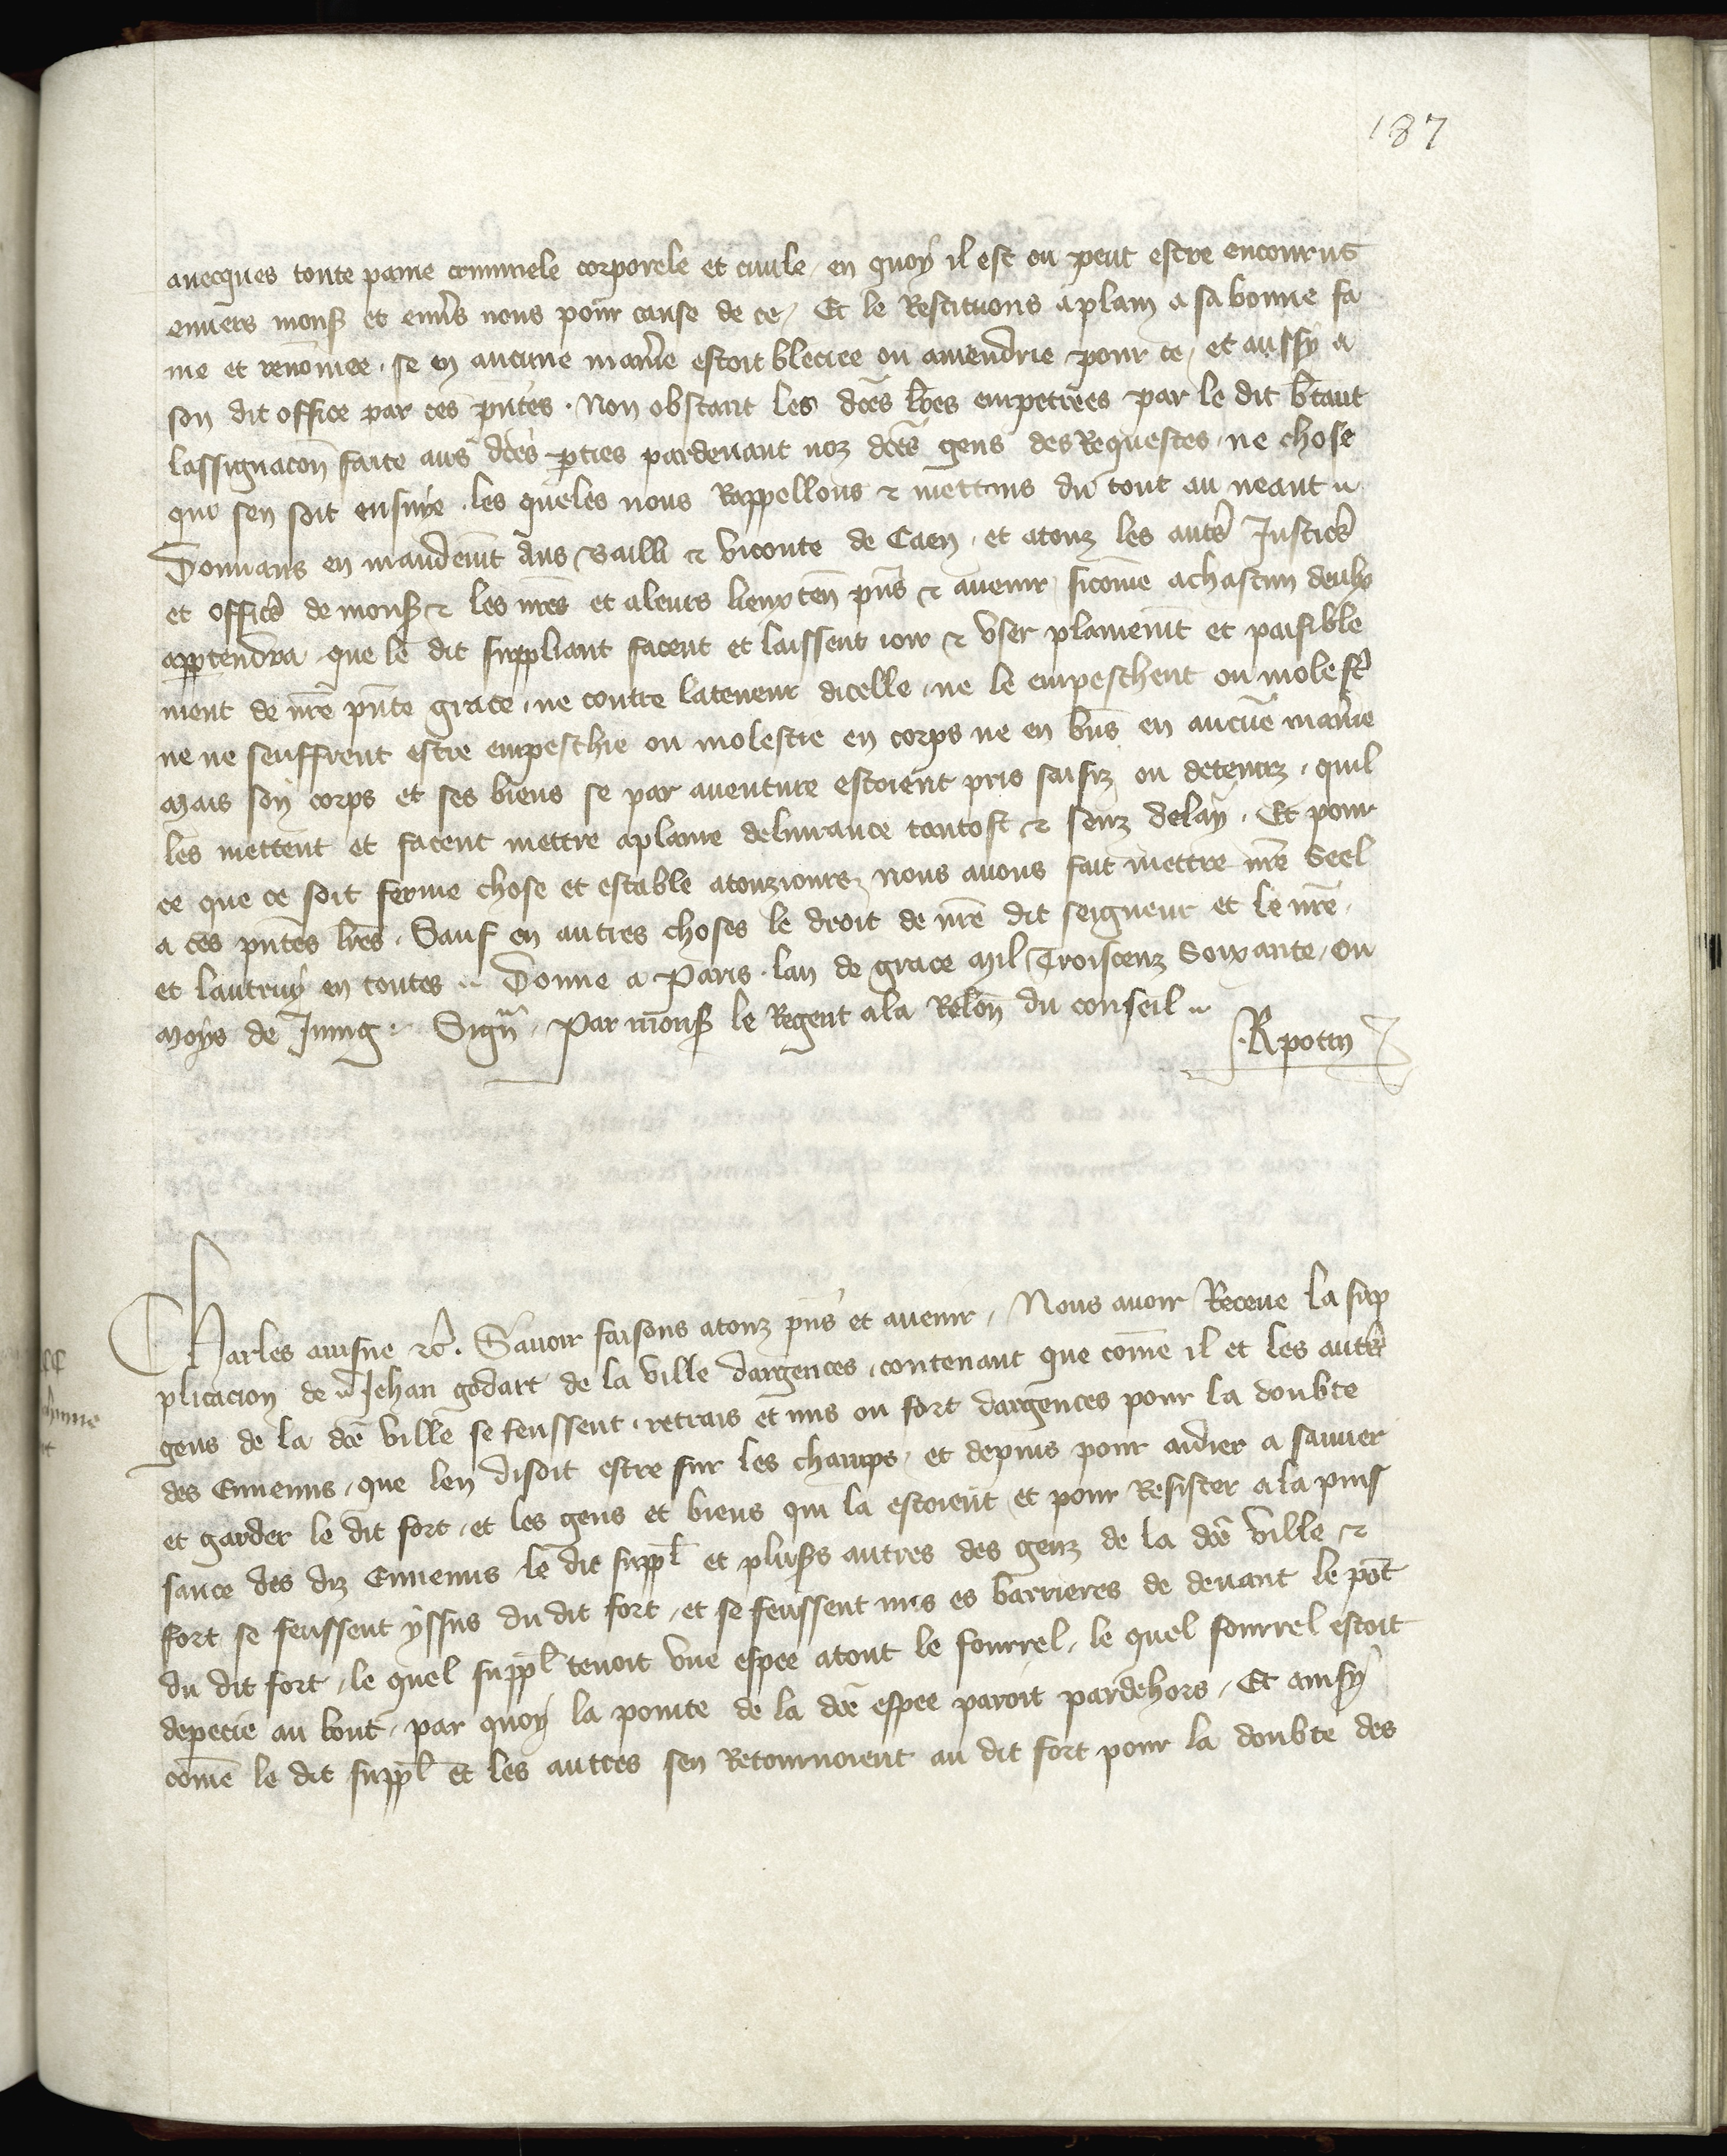 187
avecques toute paine criminele corporele et civile, en quoy il est ou peut estre encourus
envers mons̃ et env̾s nous pour cause de ce, Et le Restituons a plain a sa bonne fa
me et renõmee, se en aucune mani̾e estoit bleciee ou amendrie pour ce, et aussy a
son dit office par ces pñtes. Non obstant les dc̃es lr̃es empetrees par le dit
lassignacõn faite aus dc̃es p̱ties pardevant noz dc̃es gens des Requestes, ne chose
qui sen soit ensuye, les queles nous Rappellons ⁊ mettons du tout au neant
Donnans en mandem̃t aus Bailli ⁊ viconte de Caen, et a touz les autr̾ Justic̾
et offic̾ de mons̃ ⁊ les nr̃es et a leurs lieux teñ pñs ⁊ avenir, sicom̃e a chascun deulx
app̱tendra, que le dit suppliant facent et laissent joir ⁊ user plainem̃t et paisible
ment de nr̃e pñte grace, ne contre la teneur dicelle, ne le empeschent ou molest̾
ne ne seuffrent estre empeschie ou molestie en corps ne en bñs en aucũe mani̾e
Mais son corps et ses biens se par aventure estoient pris saisiz ou detenuz, quil
les mettent et facent mettre a plaine delivrance tantost ⁊ senz delay. Et pour
ce que ce soit ferme chose et estable a touzjours, nous avons fait mettre nr̃e Seel
a ces pñtes lr̃es. Sauf en autres choses le droit de nr̃e dit seigneur et le nr̃e,
et lautruy en toutes. Donne a Paris, lan de grace Mil Troiscenz Soixante, ou
Moys de Juing. Sigñ. Par mons̃ le Regent a la Relõn du conseil
R potin
Charles aisne ⁊c̾. Savoir faisons a touz pñs et avenir, Nous avoir Receue la sup
plicacion de Jehan godart de la ville dargences, contenant que com̃e il et les autr̾
gens de la dc̃e ville se feussent retrais et mis ou fort dargences pour la doubte
des Ennemis, que len disoit estre sur les champs, et depuis pour aidier a sauver
et garder le dit fort, et les gens et biens qui la estoient et pour Resister a la puis
sance des diz Ennemis le dit suppl̃ et plus̃s autres des genz de la dc̃e ville ⁊
fort, se feussent yssus du dit fort, et se feussent mis es barrieres de devant le põt
du dit fort, le quel suppl̃ tenoit une espee a tout le fourrel, le quel fourrel estoit
depecie au bout, par quoy la pointe de la dc̃e espee paroit pardehors, Et ainsy
com̃e le dit suppl̃ et les autres sen Retournoient au dit fort pour la doubte des